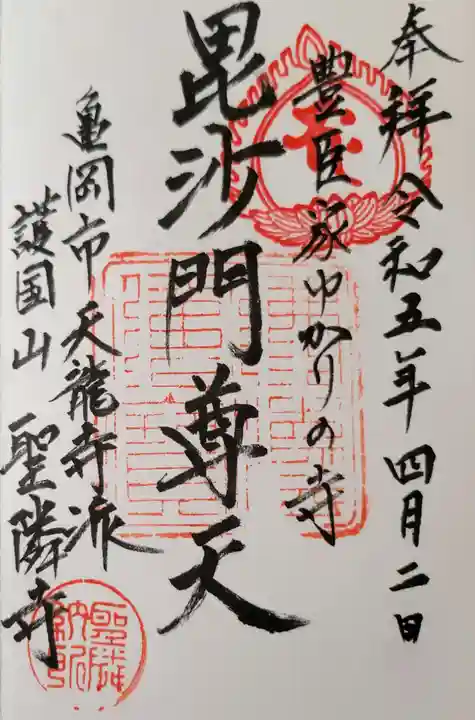 奉拝 令和五年四月二日
豊臣家ゆかりの寺
毘沙門尊天
亀岡市天龍寺派
護国山 聖隣寺